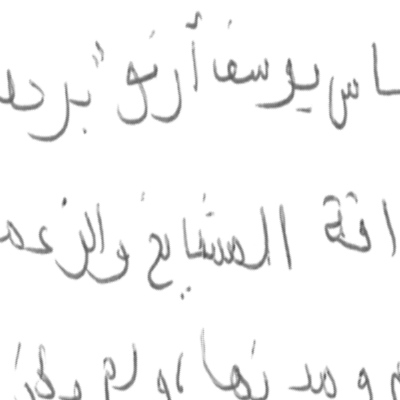 اس يوسف أرنو "برحد
اقة المشايخ والزعم
م ومدنها، ولم يكن